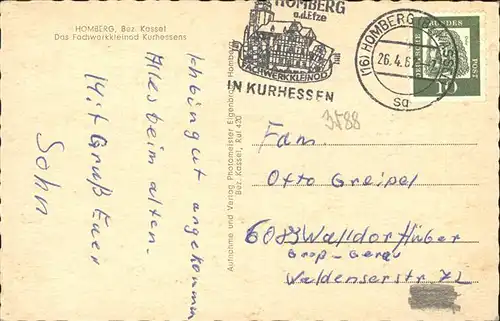 HOMBERG, Bez. Kassel
Das Fachwerkkleinod Kurhessens
HOMBERG
a.d.Efze
FACHWERKKLEINOD
IN KURHESSEN
(16) HOMBERG (BZ KASSEL)
26.4.6
sa
DEUTSCHE BUNDESPOST
10
3788
Ich bin gut angekommen
Alles beim alten.
Mit Gruß Euer
Sohn
Aufnahme und Verlag Photomeister Eigenbrod, Homberg
Bez. Kassel, Ruf 420
Fam.
Otto Greipel
6083 Walldorf über
Groß-Gerau
Waldenserstr 72